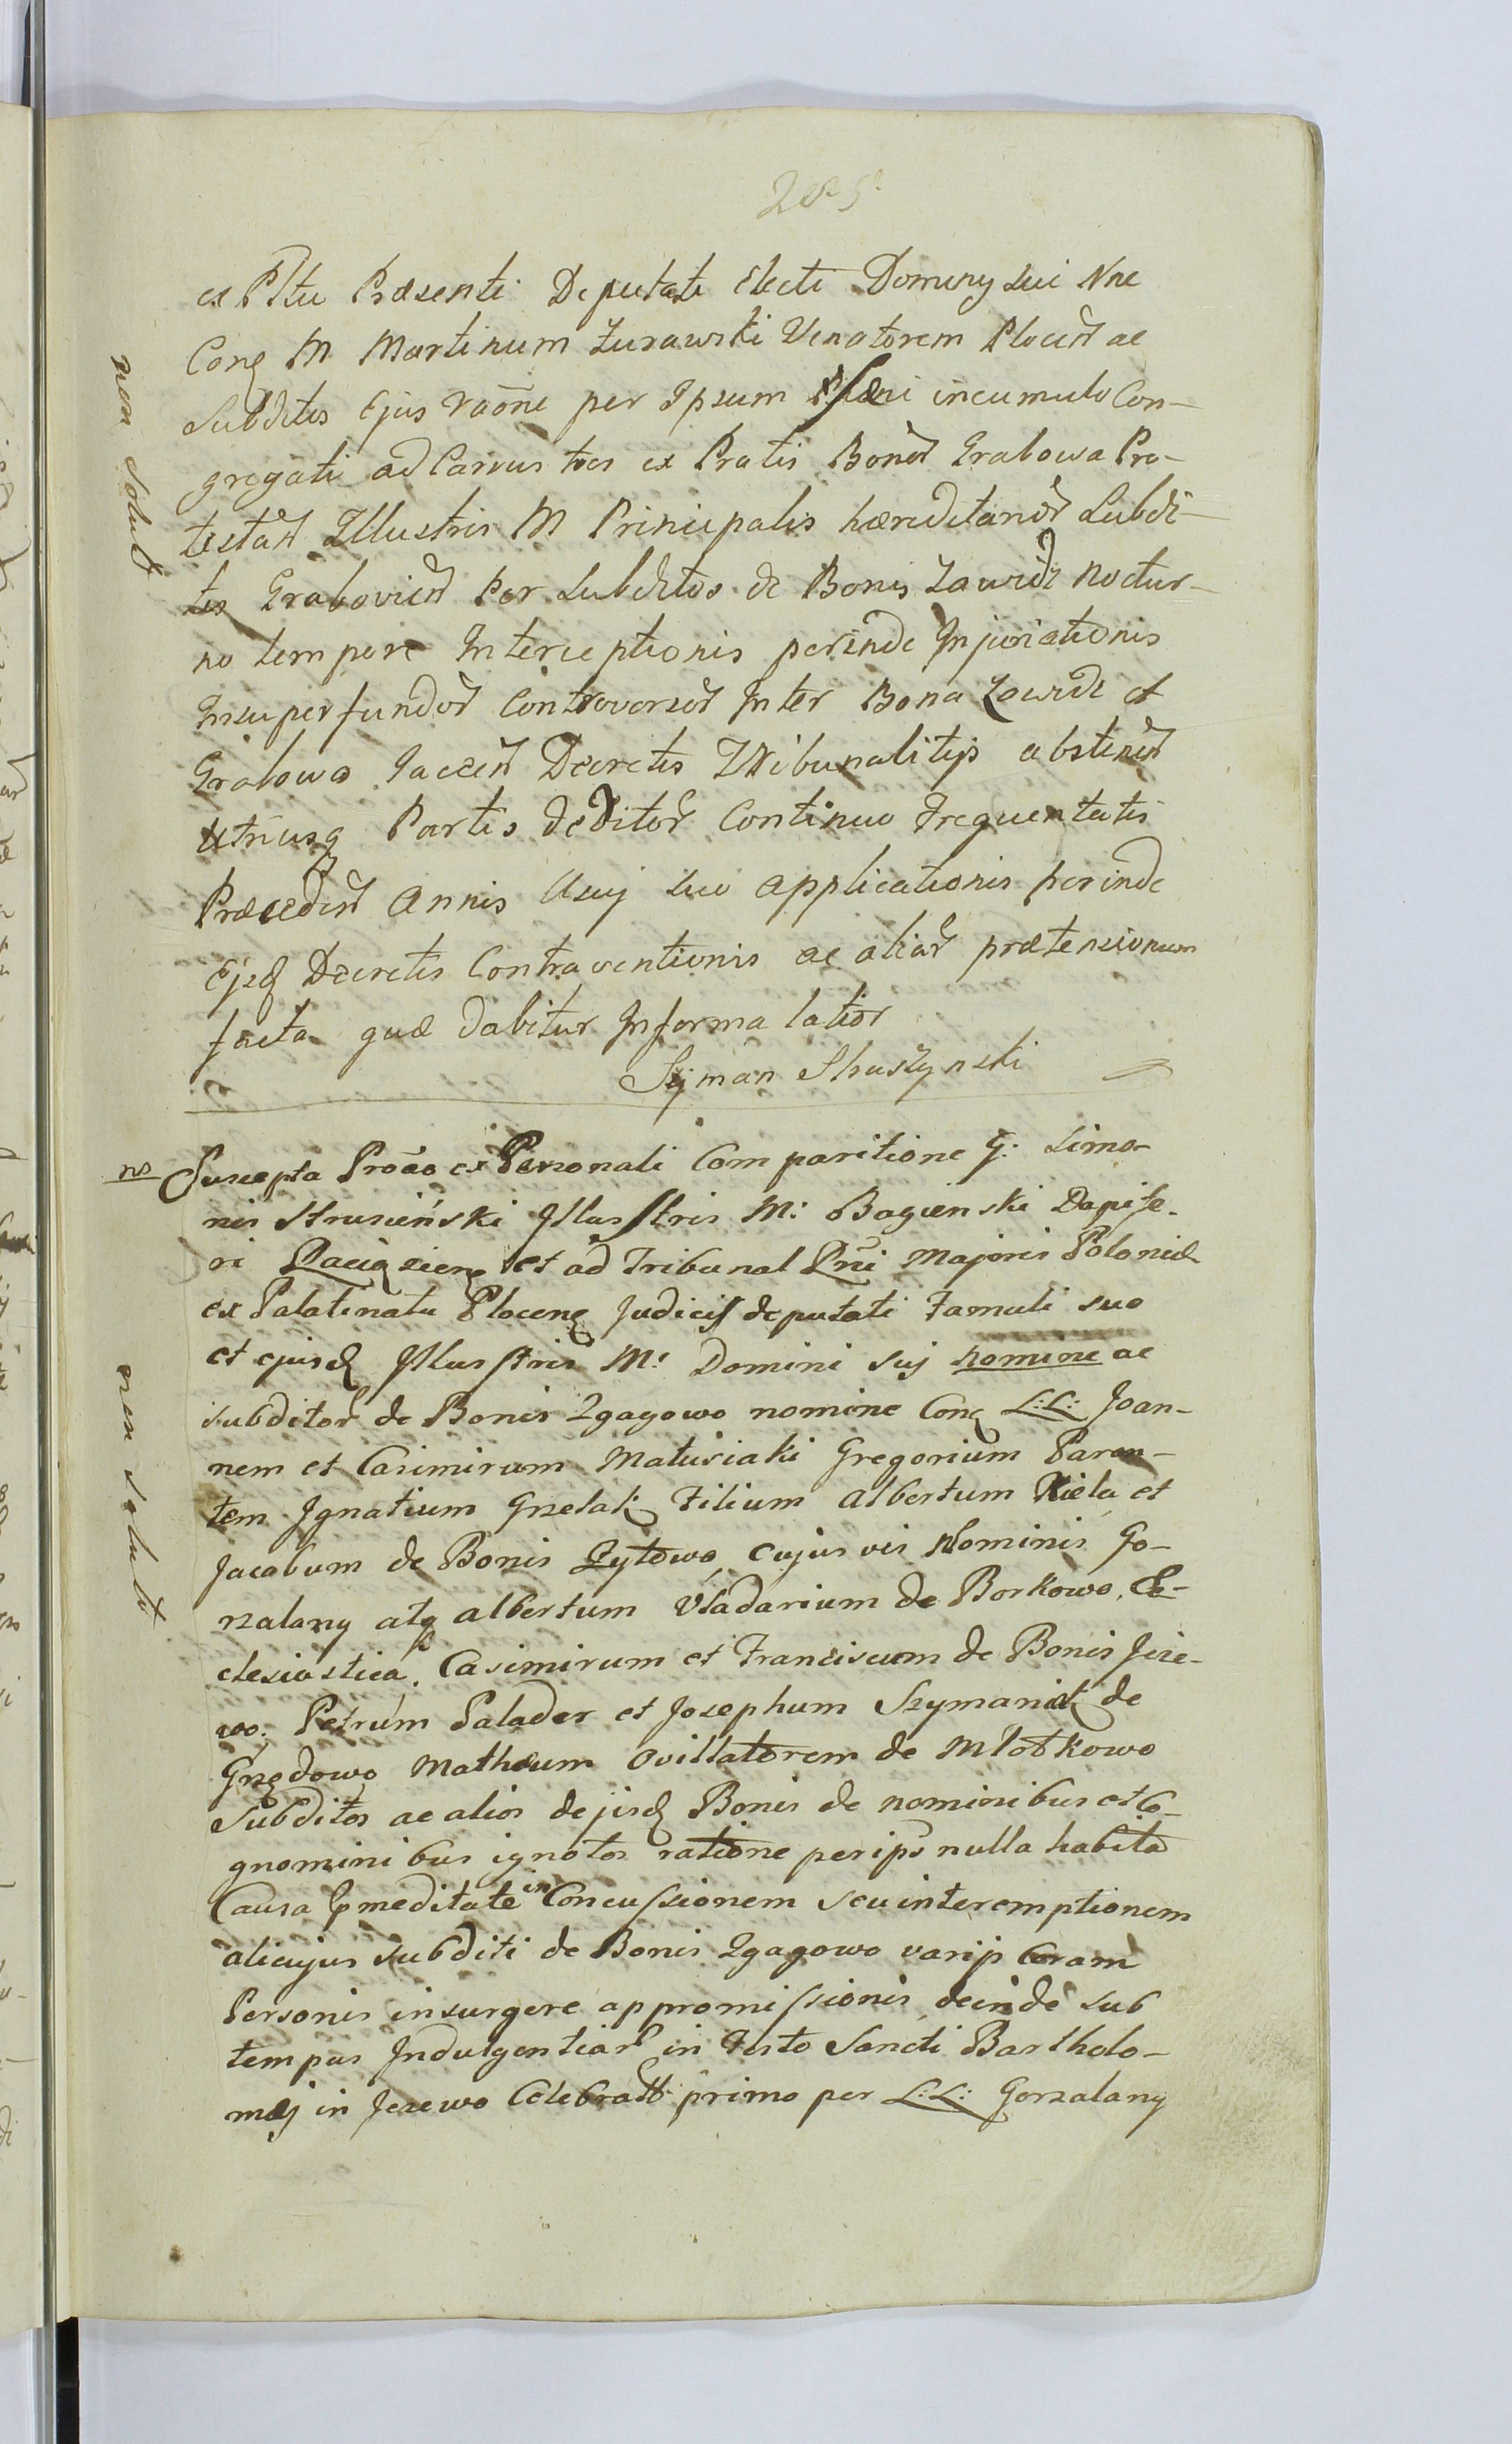 285
ex Pltu Præsenti Deputati Electi Dominy sui Nne
Conq M Martinum Zurawski Venatorem Plocen ac
Subditos Ejus raõne per Ipsum fæni incumulo Con-
gregati ad Carrus tres ex Pratis Bonor Grabowa Pro-
testan Illustris M Principalis hæreditarior Subdi-
tos Grabovien Per Subditos de Bonis Zawidz noctur-
no tempore Interceptionis perinde Injuriationis
Insuper fundor Controversor Inter Bona Zawidz et
Grabowo Jacen Decretis Tribunalitijs abstinen
Utriusq Partis Subditor Continuo Frequentatis
Præceden Annis Usuj suo applicationis perinde
Ejsd Decretis Contraventionis ac aliar prætensionum
facta quæ dabitur Informa latior
Syman Skuszynski
non solut
ns Suscepta Proão ex Personali Comparitione G: Simo-
nis Strusieński Illustris M: Bagienski Dapife-
ri Raciązien et ad Tribunal Rni Majoris Poloniæ
ex Palatinatu Plocen Judicis deputati Famuli suo
et ejusd Illustris M: Domini suj nomine ac
subditor de Bonis Zgagowo nomine Con L:L: Joan-
nem et Casimirum Matusiaki Gregorium Paren-
tem Ignatium Grzelak Filium Albertum Kiela et
Jacobum de Bonis Zytowo cujus vis Nominis Go-
rzalany atq Albertum Vladarium de Borkowo Ec-
clesiastica. Casimirum et Franciscum de Bonis Jeze-
wo. Petrum Palader et Josephum Szymaniak de
Grzędowo Mathæum Ovillatorem de Młotkowo
Subditos ac alios de jisd Bonis de nominibus et Co-
gnominibus ignotos ratione per ips nulla habita
Causa præmeditate in Concussionem seu interemptionem
alicujus subditi de Bonis Zgagowo varijs Coram
Personis insurgere appromissionis deinde sub
tempus Indulgentiar in Festo Sancti Bartholo-
mæj in Jezewo Celebratt primo per L:L: Gorzalany
non solut